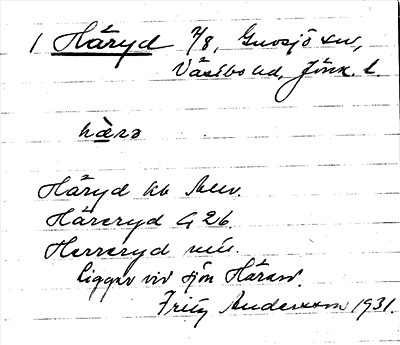 1 Håryd 7/8, Gnosjö sn,
Västbo hd, Jönk. l.
hærə
Håryd kb Allm.
Håreryd G 26.
Herreryd
ligger vid sjön Håren.
Fritz Andersson 1931.